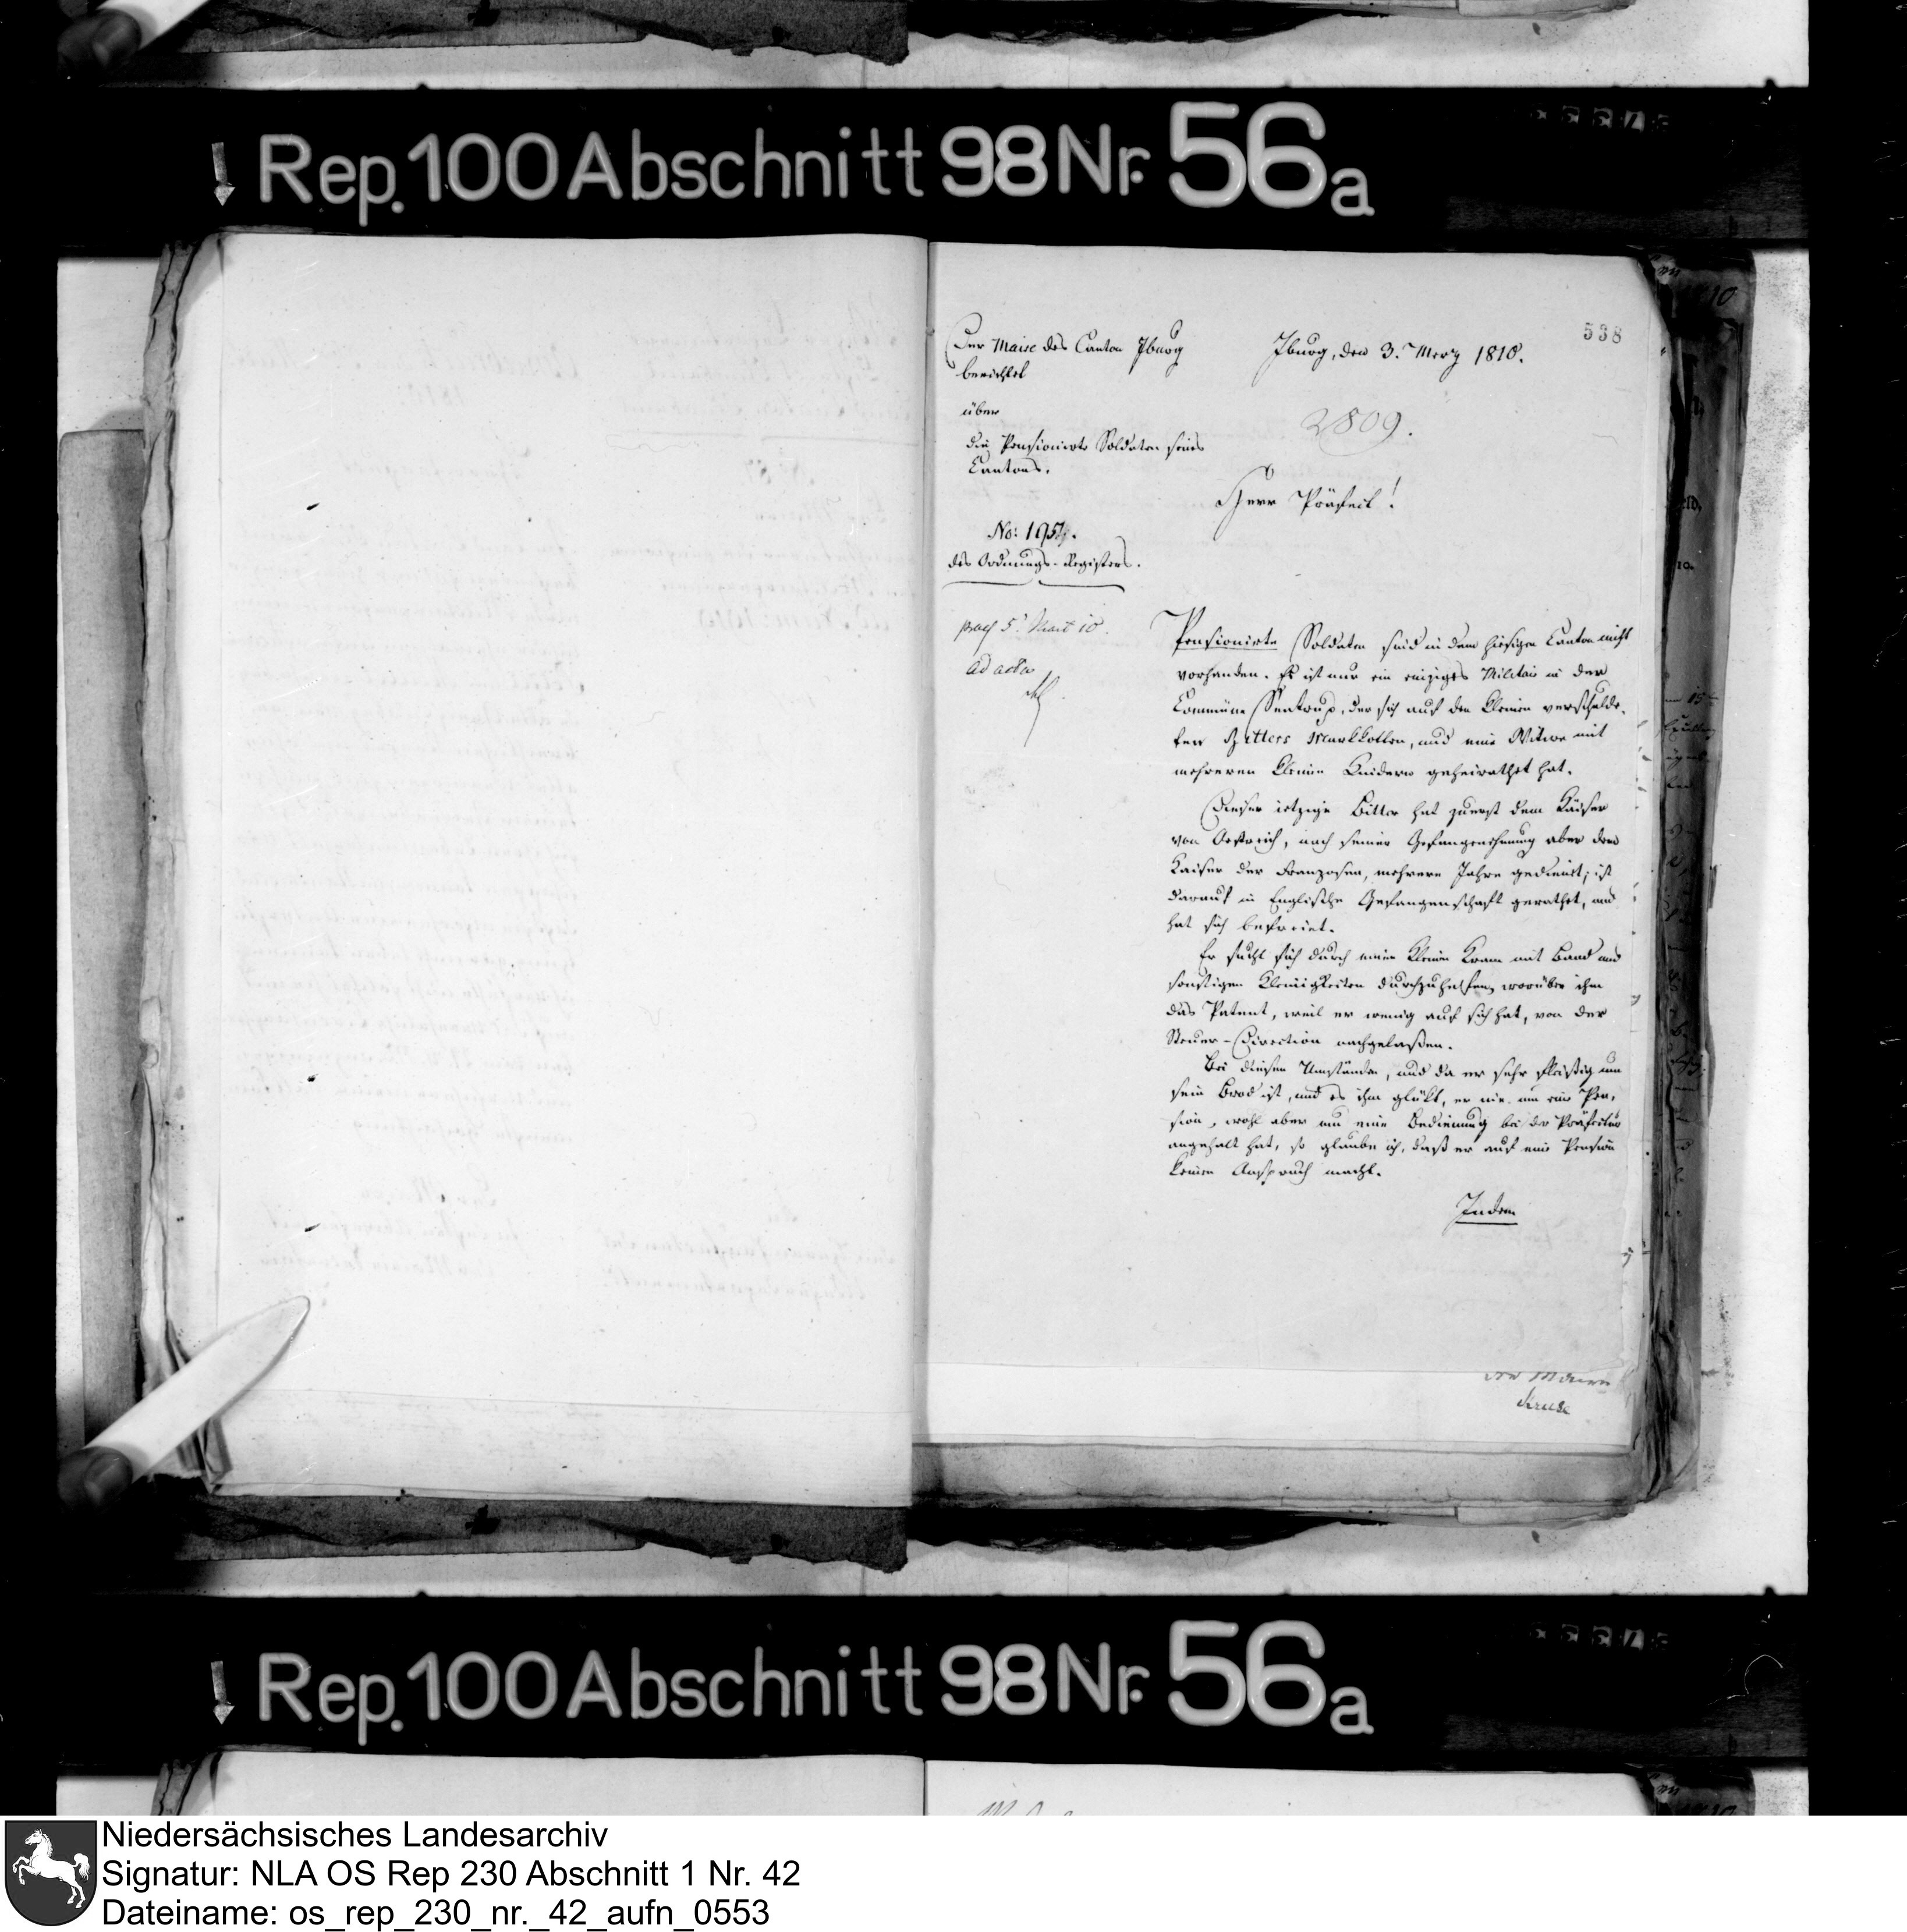 Rep. 100 Abschnitt 98 Nr. 56a
538
Der Maire des Canton Iburg
berichtet
über
die Pensionirte Soldaten seines
Cantons.
No: 195
des Ordnungs-Registers.
5. Mart 10.
ad acta
Iburg, den 3. Merz 1810.
2809.
Herr Präfect!
Pensionirte Soldaten sind in dem hiesigen Canton nicht
vorhanden. Es ist nur ein einziges Militair in der
Commüne Sentrup, der sich auf den kleinen verschulde-
ten Bitters Markkotten, und eine Witwe mit
mehreren kleinen Kindern geheirathet hat.
Dieser ietzige Bitter hat zuerst dem Kaiser
von Oestreich, nach seiner Gefangenehmung aber dem
Kaiser der Franzosen, mehrere Jahre gedienet; ist
darauf in Englische Gefangenschaft gerathet, und
hat sich befreiet.
Er sucht sich durch einen kleinen Kram mit Band und
sonstigen Kleinigkeiten durchzuhelfen, worüber ihm
das Patent, weil er wenig auf sich hat, von der
Steuer-Direction nachgelaßen.
Bei diesen Umständen, und da er sehr fleißig um
sein Brod ist, und es ihm glükt, er nie um eine Pen-
sion, wohl aber um eine Bedienung bei der Präfectur
angehalt hat, so glaube ich, daß er auf eine Pension
keinen Anspruch macht.
Indem
Kruse
Rep. 100 Abschnitt 98 Nr. 56a
Niedersächsisches Landesarchiv
Signatur: NLA OS Rep 230 Abschnitt 1 Nr. 42
Dateiname: os_rep_230_nr._42_aufn_0553